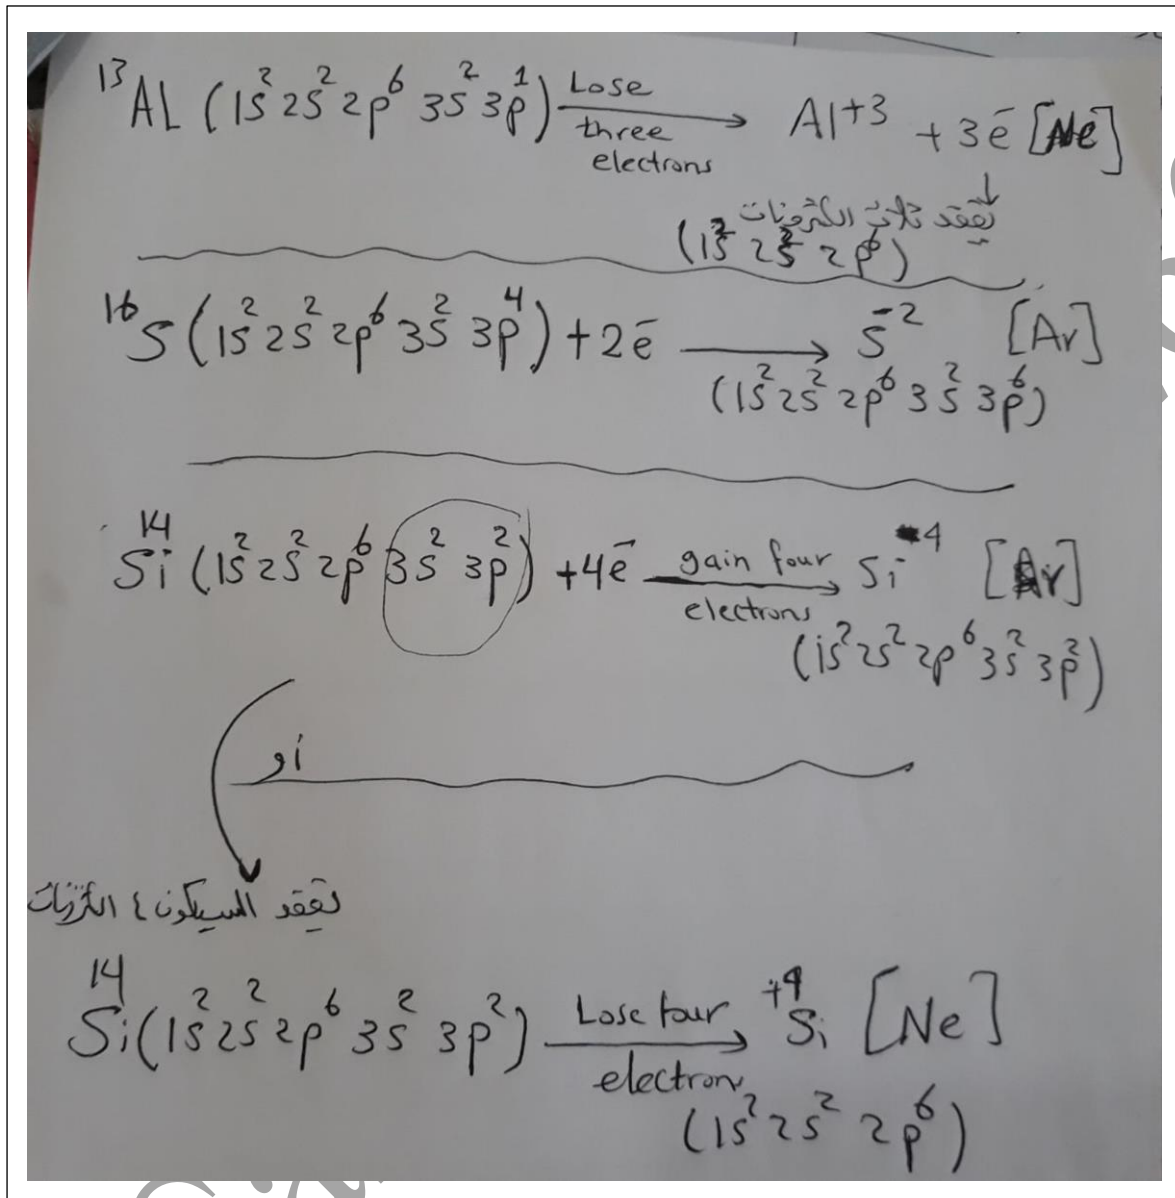 13Al (1s² 2s² 2p⁶ 3s² 3p¹) Lose three electrons → Al+3 + 3e⁻ [Ne]
تفقد ثلاث الكترونات
(1s² 2s² 2p⁶)
16S (1s² 2s² 2p⁶ 3s² 3p⁴) + 2e⁻ → S⁻² [Ar]
(1s² 2s² 2p⁶ 3s² 3p⁶)
14Si (1s² 2s² 2p⁶ 3s² 3p²) +4e⁻ gain four electrons → Si⁻⁴ [Ar]
(1s² 2s² 2p⁶ 3s² 3p²)
أو
تفقد السيلكون ٤ الكترونات
14Si (1s² 2s² 2p⁶ 3s² 3p²) Lose four electron → +4Si [Ne]
(1s² 2s² 2p⁶)